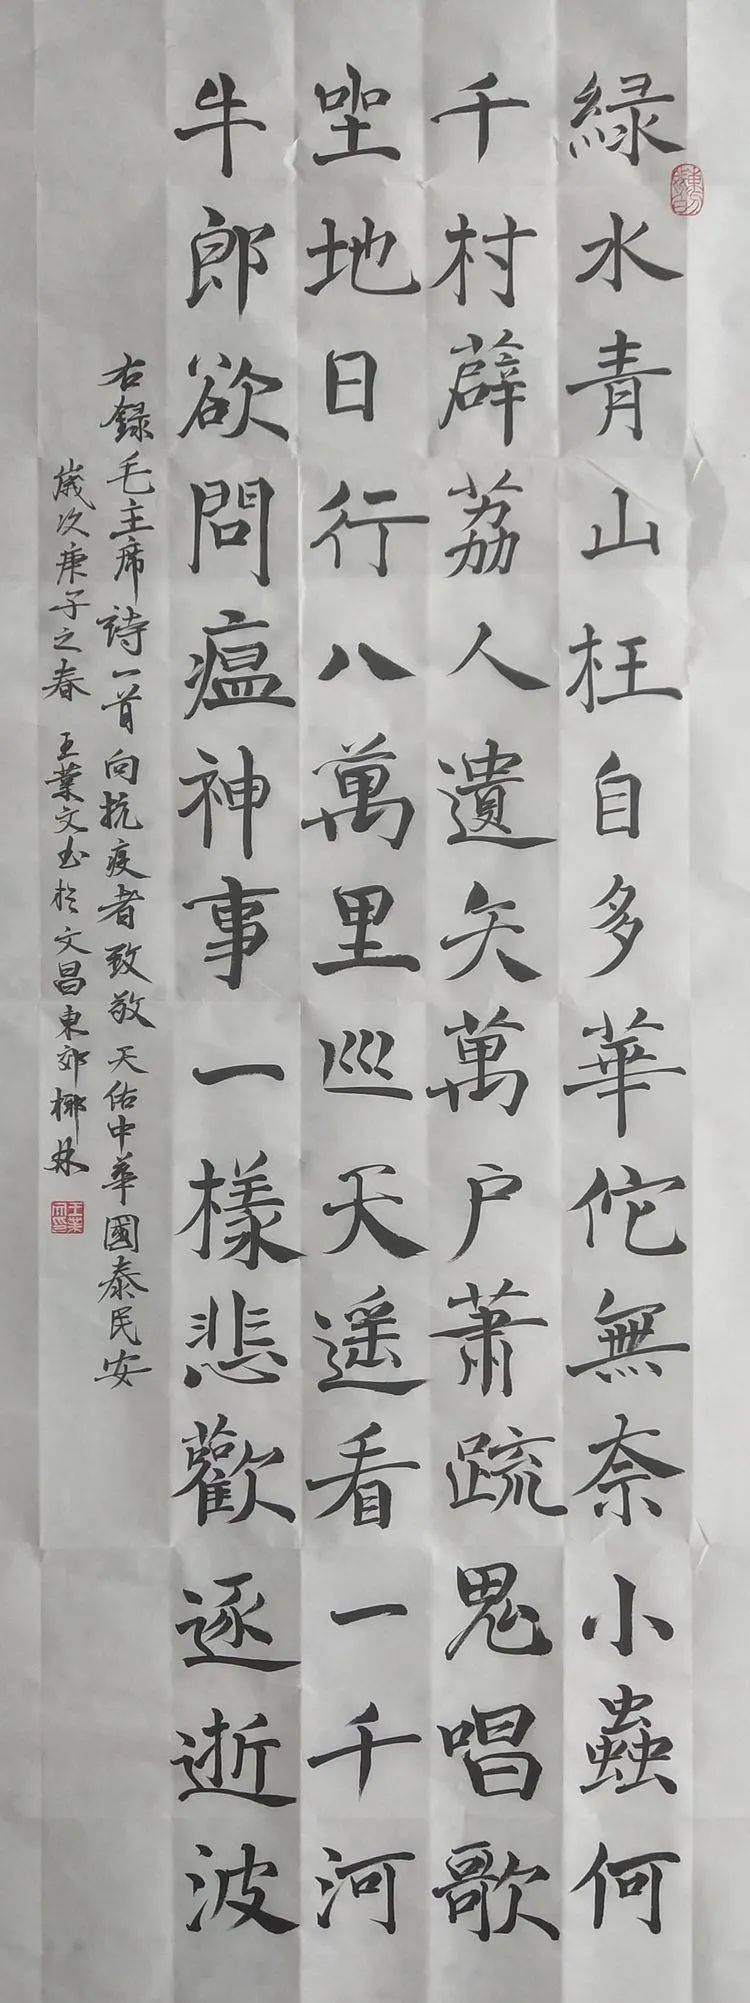 緑水青山枉自多華佗無奈小蟲何
千村薜荔人遺矢萬户蕭疏鬼唱歌
坐地日行八萬里巡天遥看一千河
牛郎欲問瘟神事一樣悲歡逐逝波
右録毛主席詩一首向抗疫者致敬天佑中華國泰民安
歲次庚子之春 王業文书於文昌東郊椰林
王業文印